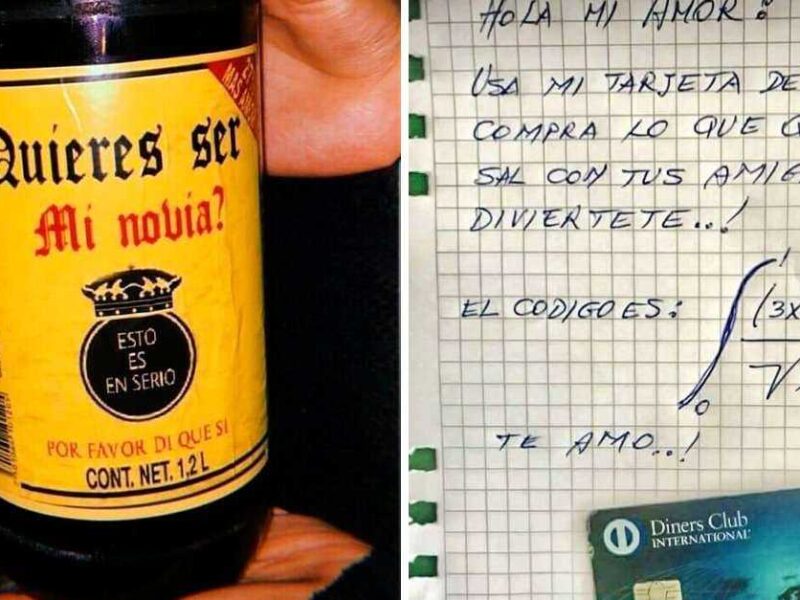 ES
MAS AMOR
Quieres ser
Mi novia?
ESTO
ES
EN SERIO
POR FAVOR DI QUE SI
CONT. NET. 1,2 L
HOLA MI AMOR:
USA MI TARJETA DE
COMPRA LO QUE Q
SAL CON TUS AMIG
DIVIERTETE..!
EL CODIGO ES: ∫ 1 0 (3x
√
TE AMO..!
Diners Club
INTERNATIONAL